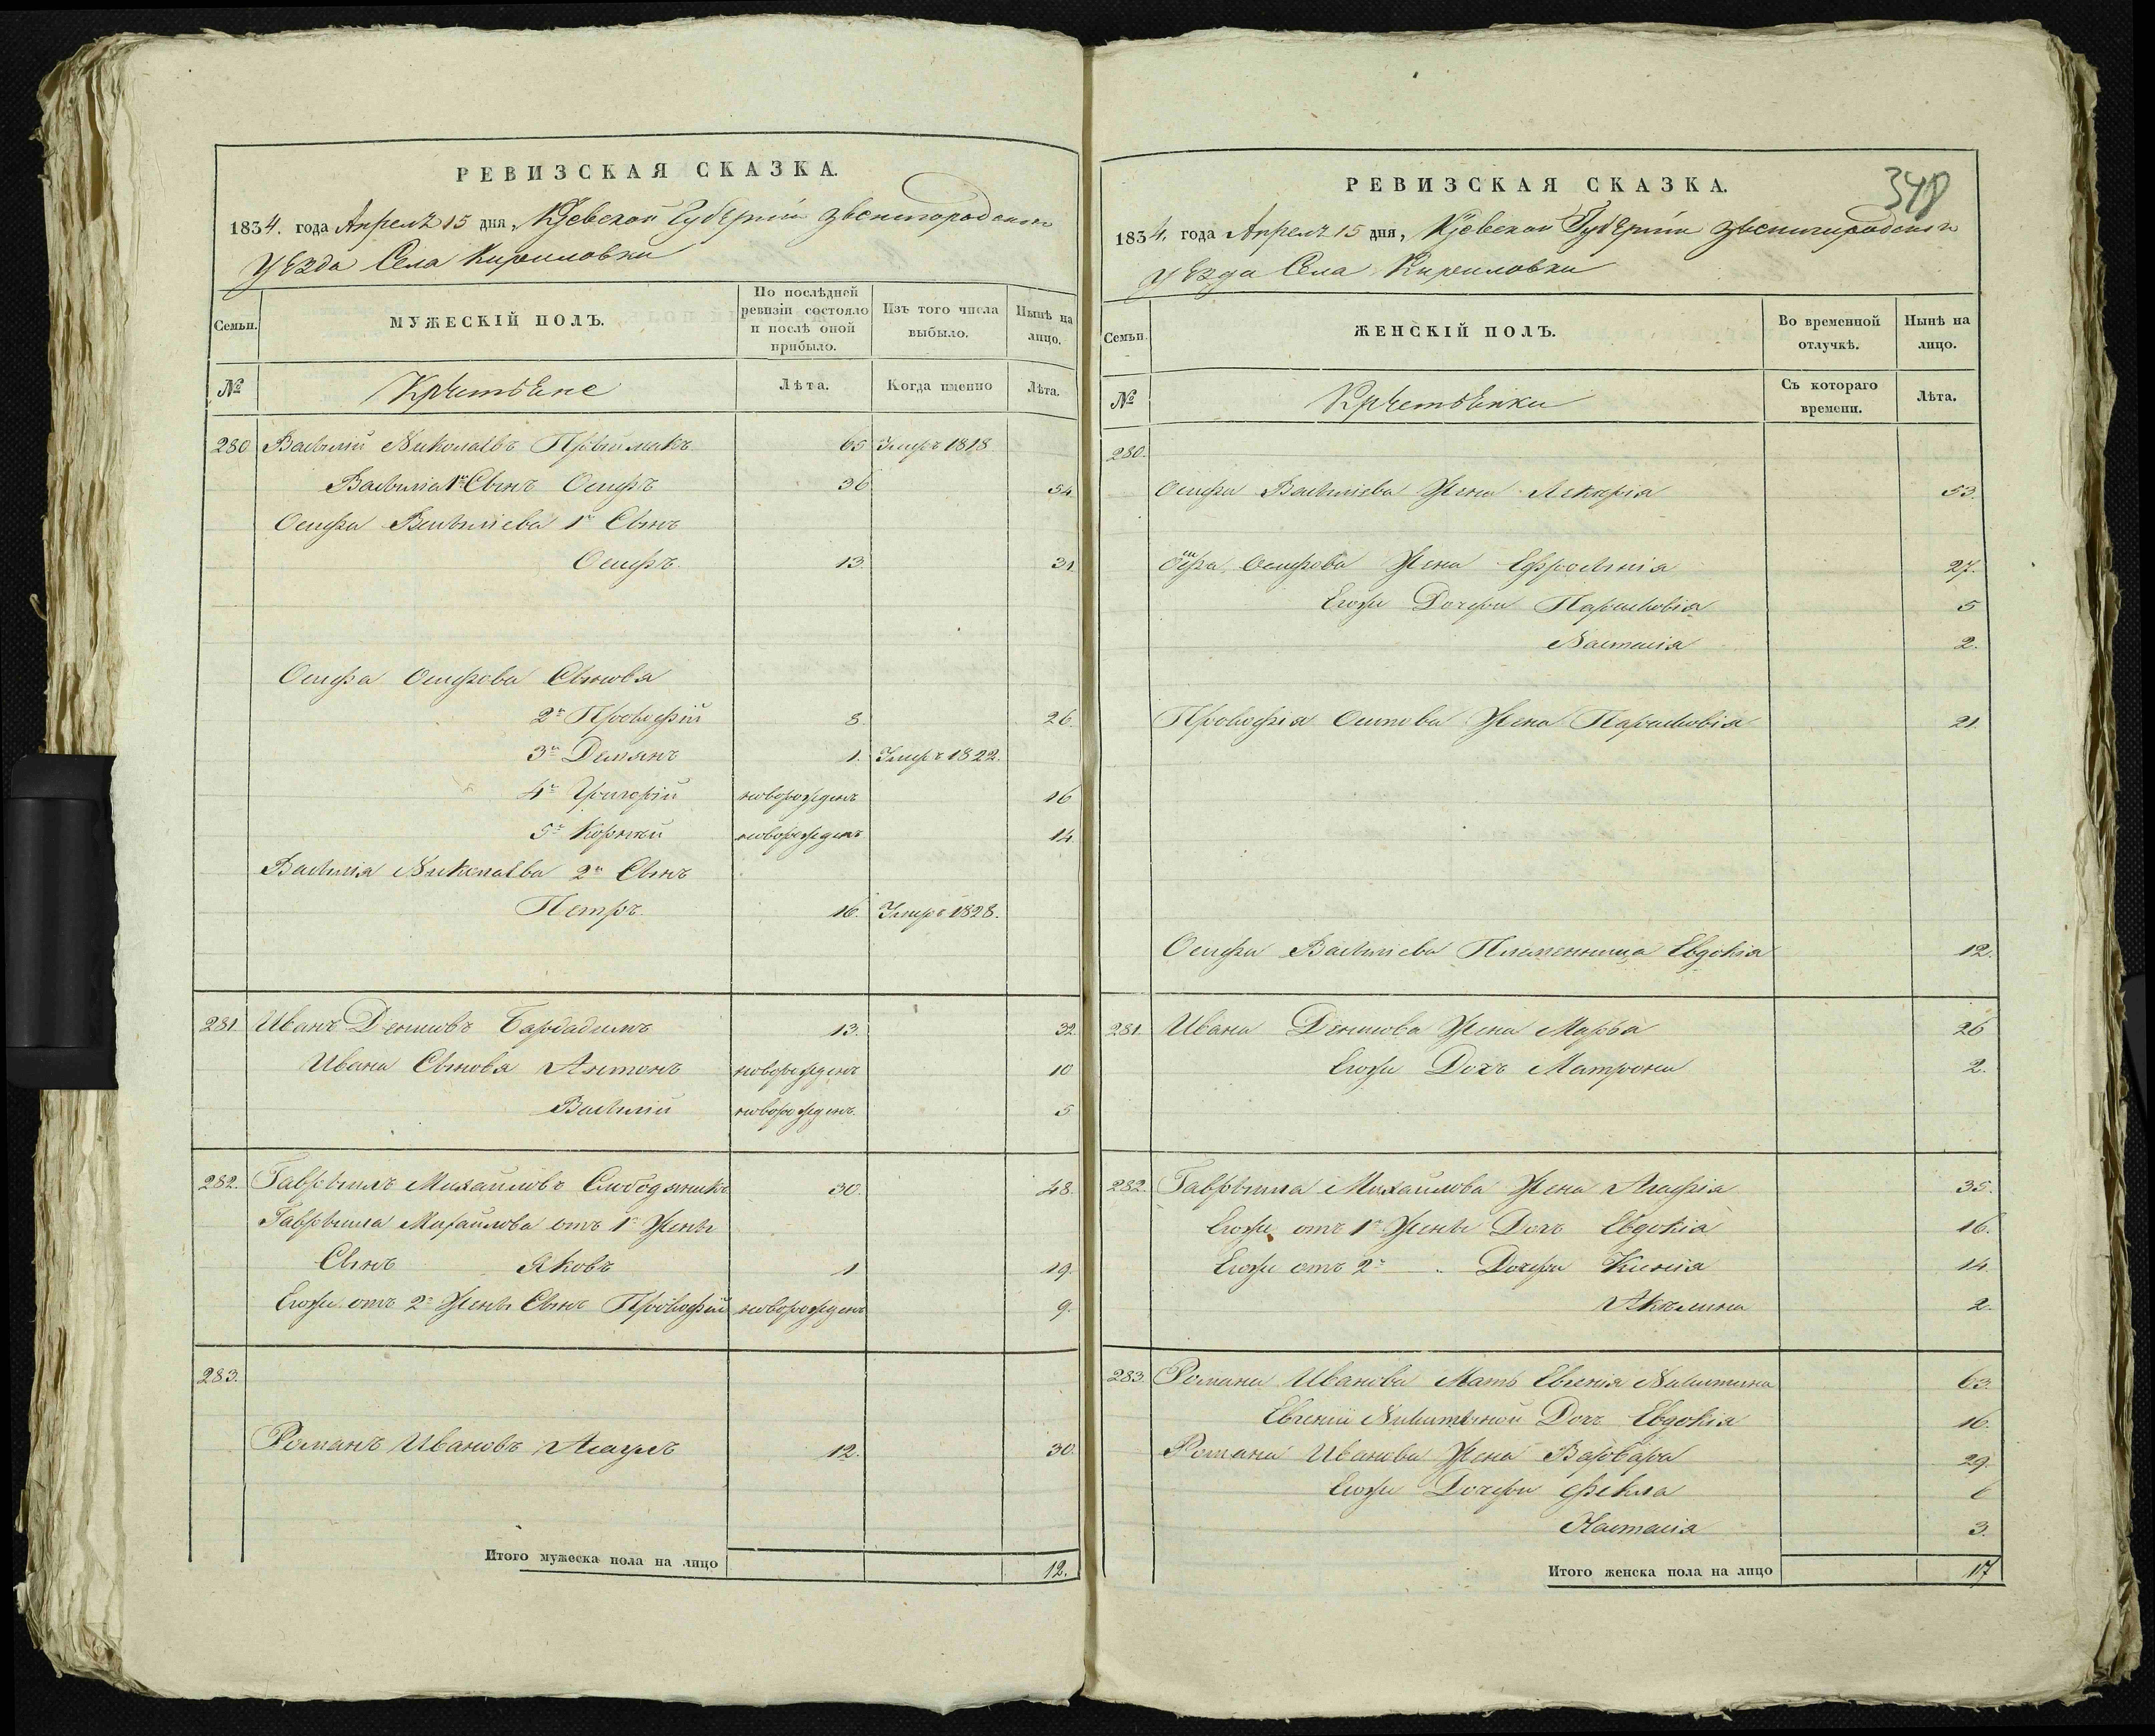 РЕВИЗСКАЯ СКАЗКА.
1834. года Апреля 15 дня, Кіевской Губерніи Звенигородскаго
уѣзда Села Кириловки
Семьи.
МУЖЕСКІЙ ПОЛЪ.
По послѣдней ревизіи состояло и послѣ оной прибыло.
Изъ того числа выбыло.
Нынѣ на лицо.
№
Лѣта.
Когда именно
Лѣта.
280 Василий Николаевъ 65 Умеръ 1818
Василія 1й Сынъ Осифъ 36 54
Осифа Василіева 1й Сынъ
Осифъ. 13. 31
Осифа Осифова Сыновя
2й Прокофій 8. 26.
3й Демянъ 1. Умеръ 1822.
4й Григорій новорожденъ 16
5й Корнѣй новорожденъ 14.
Василія Николаева 2й Сынъ
Петръ. 16. Умеръ 1828.
281 Иванъ Денисовъ Бардадимъ 13. 32
Ивана Сыновя Антонъ новорожденъ 10
Василий новорожденъ. 5
282. Гаврыилъ Михайловъ Слободяникъ 30. 48.
Гаврыила Михайлова отъ 1й Жены
Сынъ Яковъ 1 19.
Егожъ отъ 2й Жены Сынъ Прокофій новорожденъ 9.
283.
Романъ Ивановъ 12. 30.
Итого мужеска пола на лицо 12.
РЕВИЗСКАЯ СКАЗКА.
348
1834. года Апреля 15 дня, Кіевской Губерніи Звенигородскаго
уѣзда Села Кириловки
Семьи.
ЖЕНСКІЙ ПОЛЪ.
Во временной отлучкѣ.
Нынѣ на лицо.
№
Съ котораго времени.
Лѣта.
280.
Осифа Василіева Жена 53.
Осифа Осифова Жена Ефросинія 27.
Егожъ Дочери Парасковія 5
Настасія 2.
Прокофія Осипова Жена Парасковія 21.
Осифа Василіева Племенница Евдокія 12.
281. Ивана Денисова Жена Марфа 26
Егожъ Дочъ Матрона 2.
282. Гаврыила Михайлова Жена Агафія 35.
Егожъ отъ 1й Жены Дочъ Евдокія 16.
Егожъ отъ 2й " Дочери Ксенія 14.
Акилина 2.
283. Романа Иванова Мать Евгенія Никитина 63.
Евгеніи Никитиной Дочъ Евдокія 16.
Романа Иванова Жена Варвара 29.
Егожъ Дочери Фекла 6
Настасія 3.
Итого женска пола на лицо 17